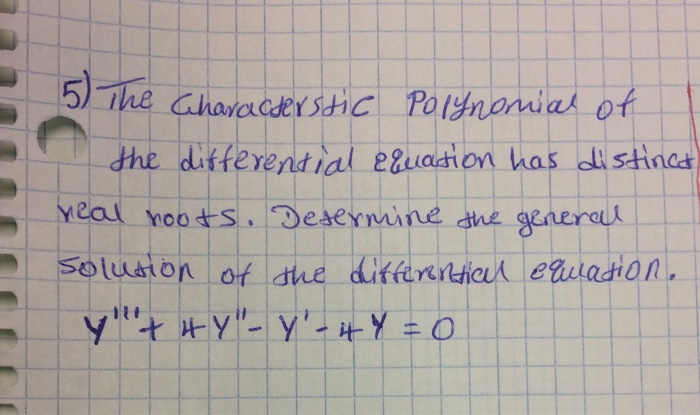 5) The Characterstic Polynomial of
the differential equation has distinct
real roots. Determine the general
solution of the differential equation.
y''' + 4y'' - y' - 4y = 0